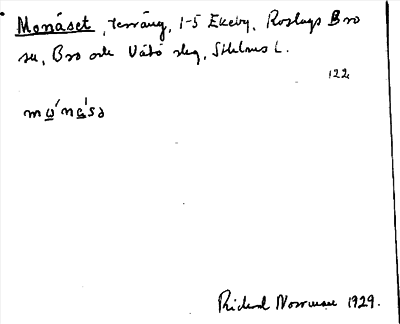 Monåset, terräng, 1-5 Ekeby, Roslags Bro
sn, Bro och Vätö slg, Sthlms L.
122
Rickard Norrman 1929.